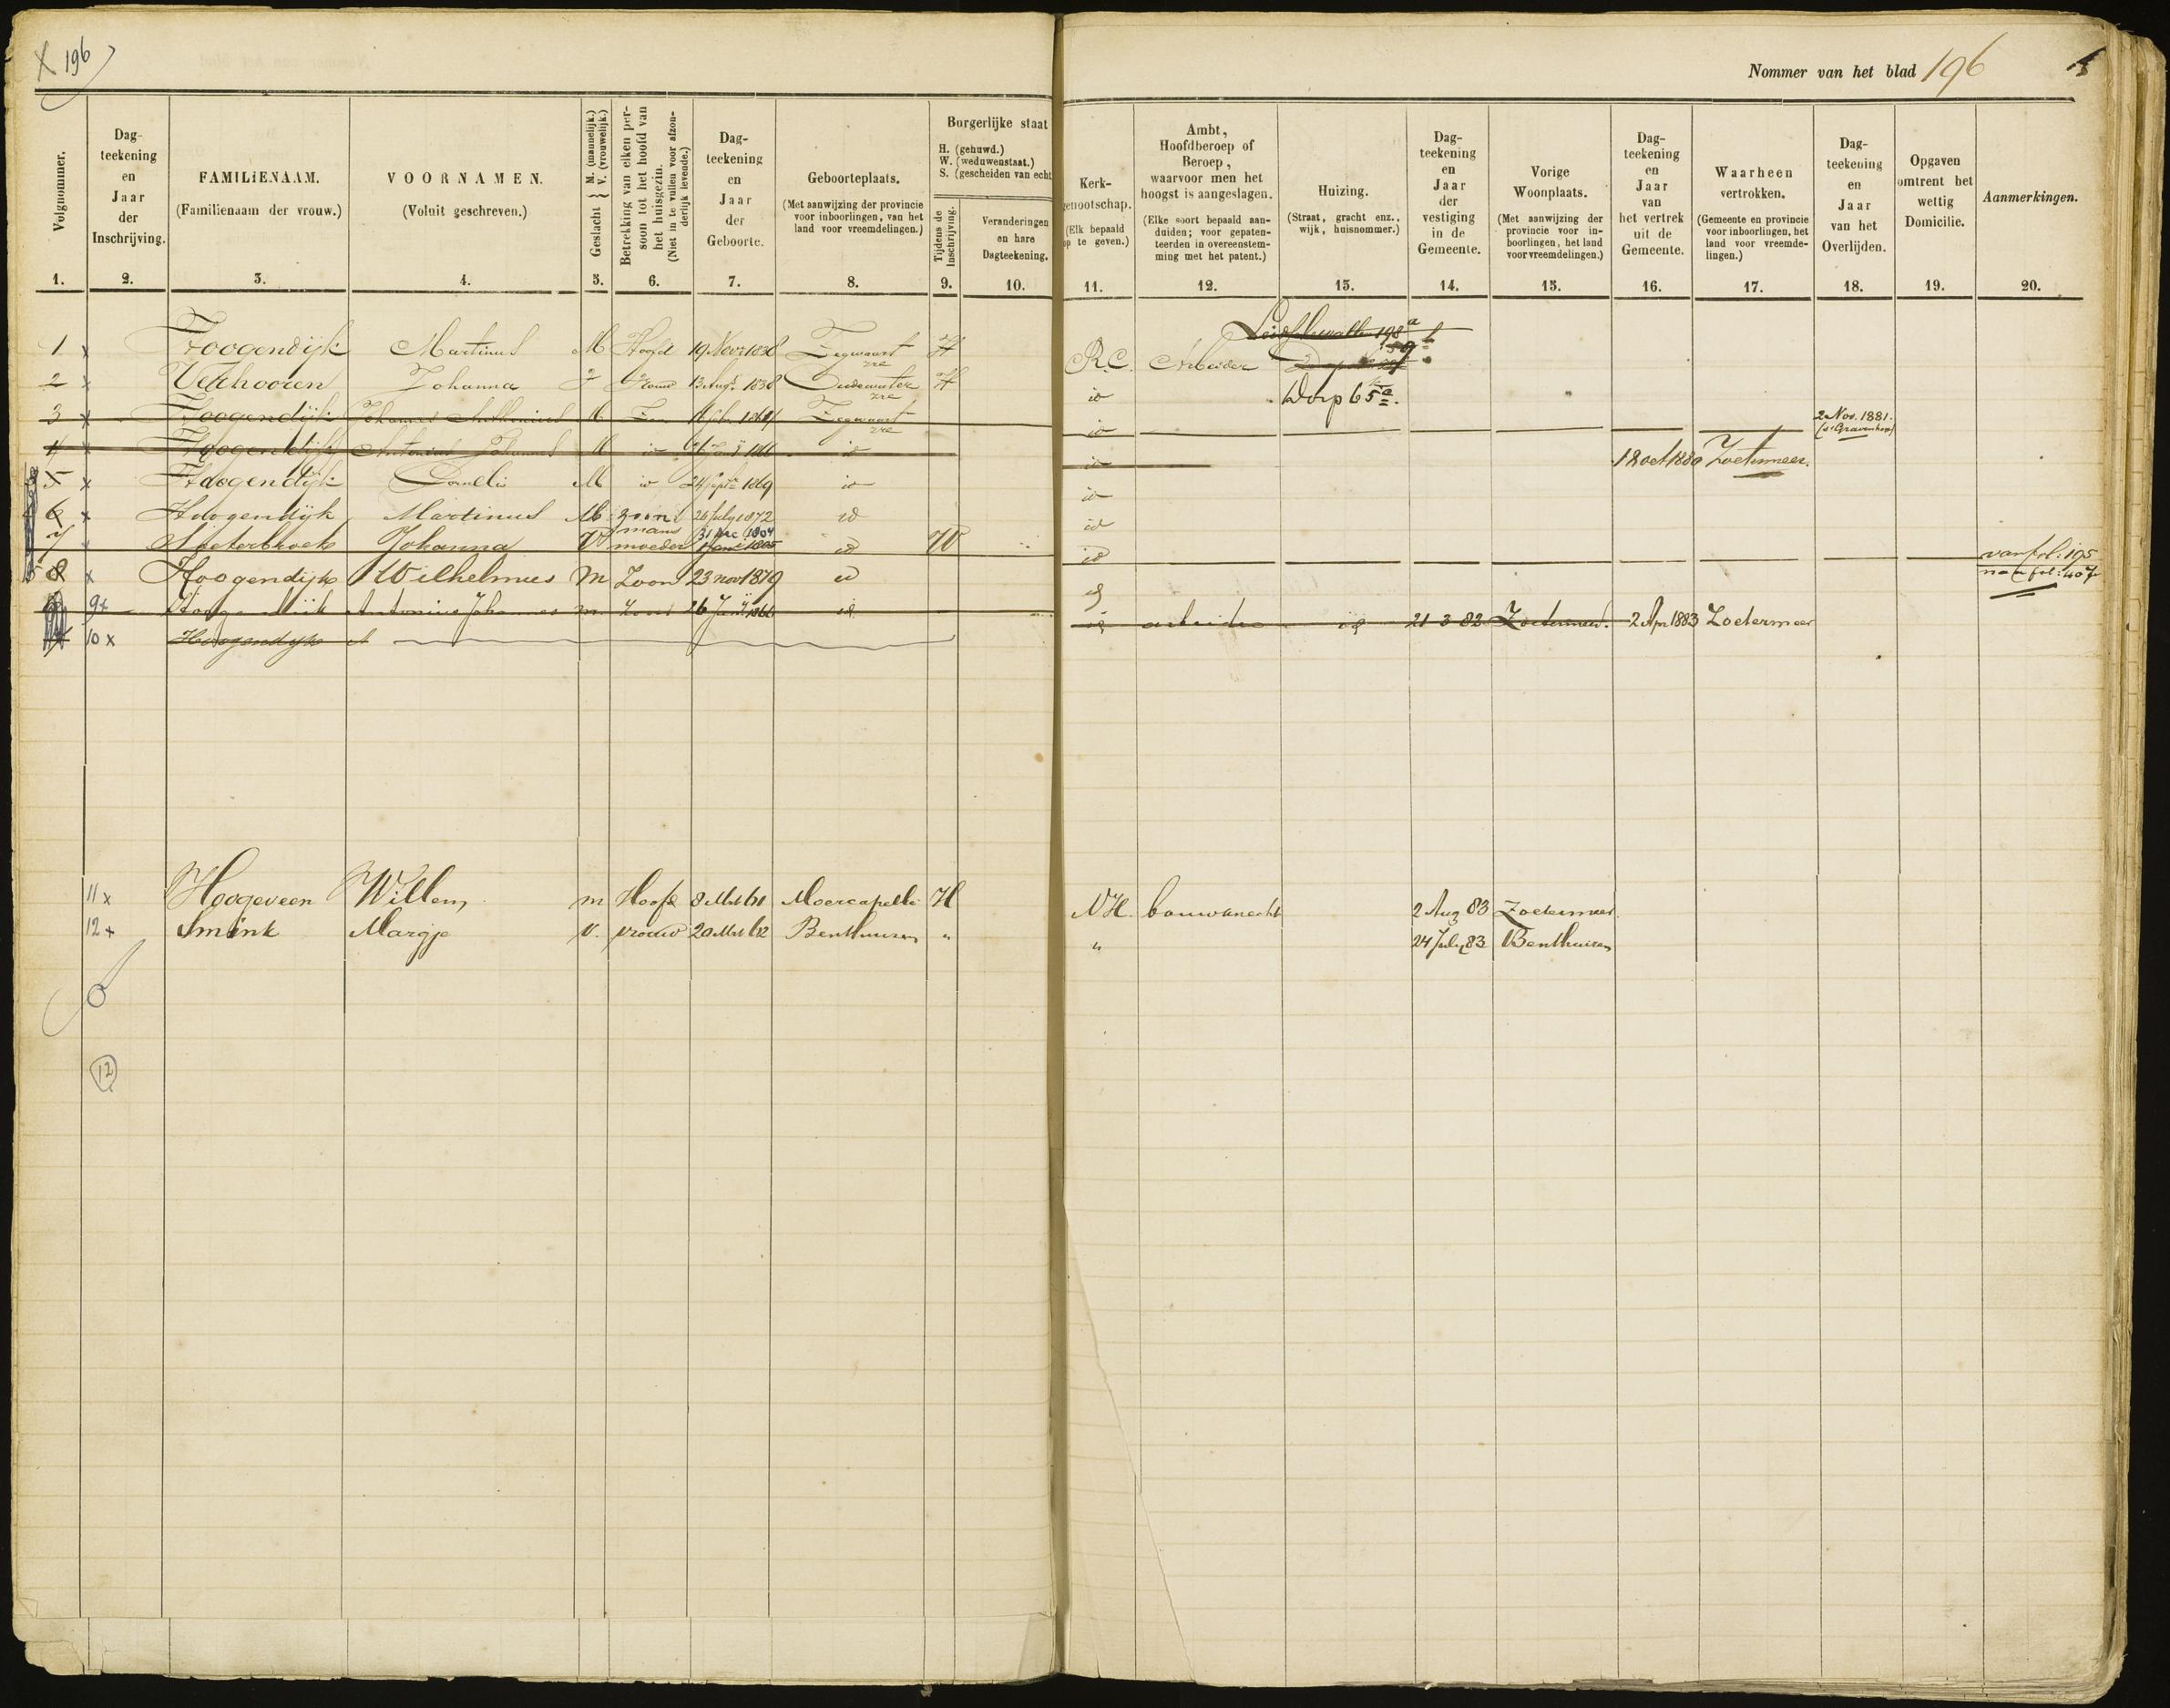 X 196
Nommer van het blad 196
Volgnommer.
1.
Dag-
teekening
en
Jaar
der
Inschrijving.
2.
FAMILIENAAM.
(Familienaam der vrouw.)
3.
VOORNAMEN.
(Voluit geschreven.)
4.
Geslacht } M. (mannelijk.) V. (vrouwelijk.)
5.
Betrekking van elken per-
soon tot het hoofd van
het huisgezin.
(Niet in te vullen voor afzon-
derlijk levende.)
6.
Dag-
teekening
en
Jaar
der
Geboorte.
7.
Geboorteplaats.
(Met aanwijzing der provincie
voor inboorlingen, van het
land voor vreemdelingen.)
8.
Burgerlijke staat
H. (gehuwd.)
W. (weduwenstaat.)
S. (gescheiden van echt
Tijdens de
Inschrijving.
9.
Veranderingen
en hare
Dagteekening.
10.
Kerk-
genootschap.
(Elk bepaald
op te geven.)
11.
Ambt,
Hoofdberoep of
Beroep,
waarvoor men het
hoogst is aangeslagen.
(Elke soort bepaald aan-
duiden; voor gepaten-
teerden in overeenstem-
ming met het patent.)
12.
Huizing.
(Straat, gracht enz.,
wijk, huisnommer.)
13.
Dag-
teekening
en
Jaar
der
vestiging
in de
Gemeente.
14.
Vorige
Woonplaats.
(Met aanwijzing der
provincie voor in-
boorlingen, het land
voor vreemdelingen.)
15.
Dag-
teekening
en
Jaar
van
het vertrek
uit de
Gemeente.
16.
Waarheen
vertrokken.
(Gemeente en provincie
voor inboorlingen, het
land voor vreemde-
lingen.)
17.
Dag-
teekening
en
Jaar
van het
Overlijden.
18.
Opgaven
omtrent het
wettig
Domicilie.
19.
Aanmerkingen.
20.
1 x Hoogendijk Martinus M Hoofd 19 Novr 1838 Zegwaart zre H R.C. Arbeider
2 x Verhooren Johanna Vrouw 13 Augt 1838 Oudewater zre H id Dorp 65a.
3 x Hoogendijk Johannes Anthonius M Zn 1864 Zegwaart zre id 2 Nov. 1881. (s'Gravenhage)
4 x Hoogendijk Antonius Johannes M id 26 Jany 1866 id id 18 oct 1880 Zoetermeer.
5 x Hoogendijk Cornelis M id 24 Septr 1869 id id
6 x Hoogendijk Martinus M zoon 26 July 1872 id id
7 Johanna V mans moeder 31 Dec 1804 id W id van fol: 195
naar fol: 407
8 x Hoogendijk Wilhelmus M Zoon 23 nov 1879 id
9 x Hoogendijk Antonius Johannes m. zoon 26 Jany 1866 id id arbeider id 21-3-82 Zoetermeer. 2 Apr 1883 Zoetermeer
10 x Hoogendijk A
11 x Hoogeveen Willem m Hoofd 8 Mrt 61 Moercapelle H NH. bouwknecht 2 Aug 83 Zoetermeer.
12 x Smink Margje V. vrouw 20 Mrt 62 Benthuizen " " 24 July 83 Benthuizen
12